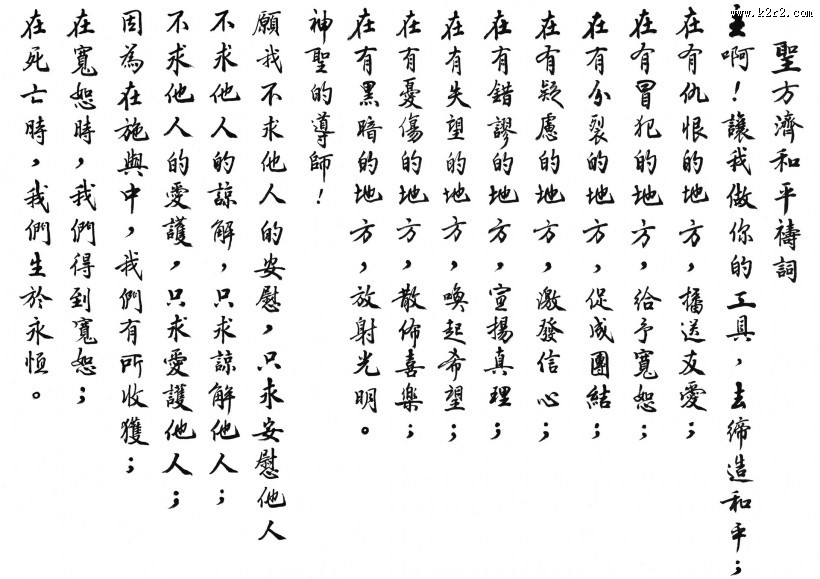 www.k2r2.com
聖方濟和平禱詞
主啊！讓我做你的工具，去締造和平；
在有仇恨的地方，播送友愛；
在有冒犯的地方，給予寬恕；
在有分裂的地方，促成團結；
在有疑慮的地方，激發信心；
在有錯謬的地方，宣揚真理；
在有失望的地方，喚起希望；
在有憂傷的地方，散佈喜樂；
在有黑暗的地方，放射光明。
神聖的導師！
願我不求他人的安慰，只求安慰他人
不求他人的諒解，只求諒解他人；
不求他人的愛護，只求愛護他人；
因為在施與中，我們有所收獲；
在寬恕時，我們得到寬恕；
在死亡時，我們生於永恆。